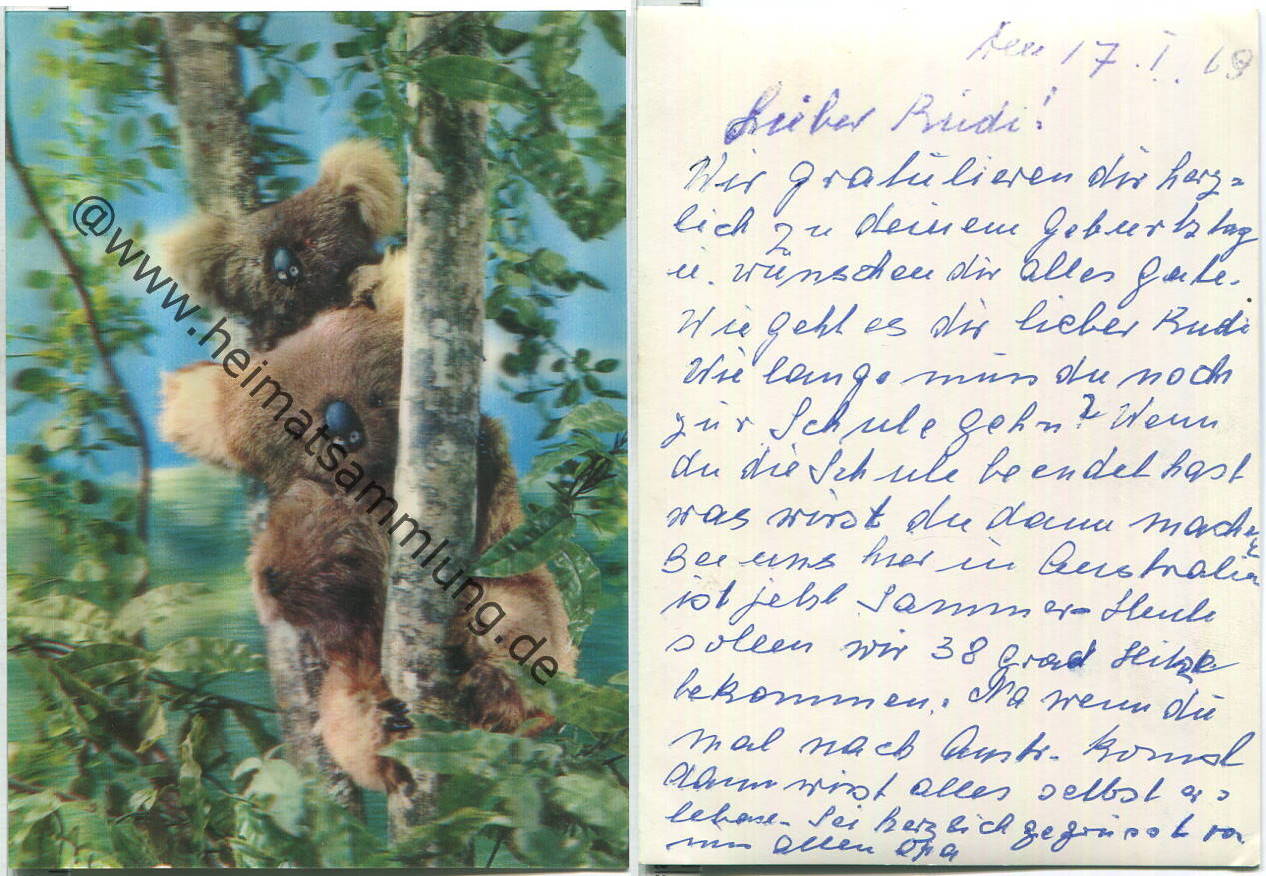 @www.heimatsammlung.de
den 17. I. 69
Lieber Rudi!
Wir gratulieren dir herz=
lich zu deinem Geburtztag
u. wünschen dir alles Gute.
Wie geht es dir lieber Rudi
Wie lange muss du noch
zur Schule gehn? Wenn
du die Schule beendet hast
was wirst du dann machen
Bei uns hier in Australien
ist jetzt Sommer- Heute
sollen wir 38 grad Hitze
bekommen. Na wenn du
mal nach Austr. komst
dann wirst alles selbst er=
leben. Sei herzlich gegrüsst von
uns allen Opa